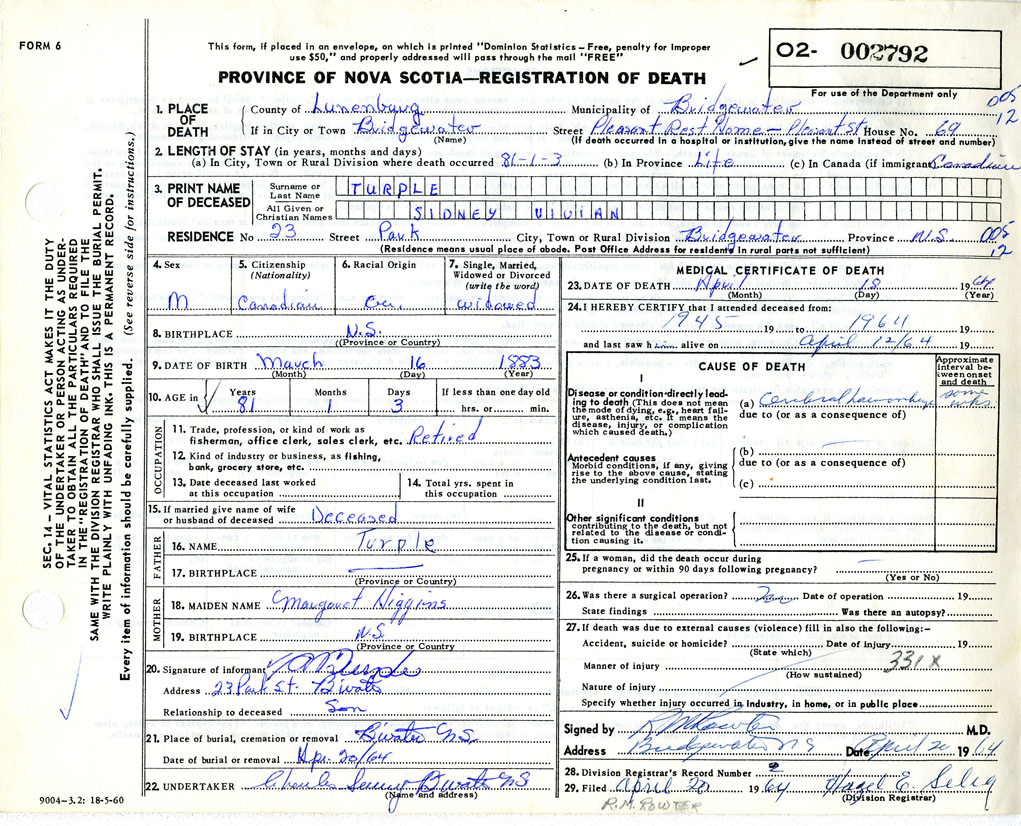 FORM 6
This form, if placed in an envelope, on which is printed "Dominion Statistics – Free, penalty for improper
use $50," and properly addressed will pass through the mail "FREE"
PROVINCE OF NOVA SCOTIA—REGISTRATION OF DEATH
O2- 002792
For use of the Department only
005
12
1. PLACE OF DEATH
County of Lunenburg Municipality of Bridgewater
If in City or Town Bridgewater Street Pleasant Rest Home – Pleasant St House No. 69
(Name) (If death occurred in a hospital or institution, give the name instead of street and number)
2. LENGTH OF STAY (in years, months and days)
(a) In City, Town or Rural Division where death occurred 81-1-3 (b) In Province Life (c) In Canada (if immigrant) Canadian
3. PRINT NAME OF DECEASED
Surname or Last Name TURPLE
All Given or Christian Names SIDNEY VIVIAN
RESIDENCE No 23 Street Park City, Town or Rural Division Bridgewater Province N.S. 005
12
(Residence means usual place of abode. Post Office Address for residents in rural parts not sufficient)
4. Sex
M
5. Citizenship
(Nationality)
Canadian
6. Racial Origin
7. Single, Married,
Widowed or Divorced
(write the word)
widowed
8. BIRTHPLACE N.S.
(Province or Country)
9. DATE OF BIRTH March 16 1883
(Month) (Day) (Year)
10. AGE in Years Months Days If less than one day old
81 1 3 hrs. or min.
OCCUPATION
11. Trade, profession, or kind of work as
fisherman, office clerk, sales clerk, etc. Retired
12. Kind of industry or business, as fishing,
bank, grocery store, etc.
13. Date deceased last worked
at this occupation
14. Total yrs. spent in
this occupation
15. If married give name of wife
or husband of deceased Deceased
FATHER
16. NAME Turple
17. BIRTHPLACE
(Province or Country)
MOTHER
18. MAIDEN NAME Margaret Higgins
19. BIRTHPLACE N.S.
(Province or Country
20. Signature of informant
Address 23 Park St. B'water
Relationship to deceased Son
21. Place of burial, cremation or removal B'water N.S.
Date of burial or removal Apr. 20/64
22. UNDERTAKER Charles B'water NS
(Name and address)
9004-3.2: 18-5-60
MEDICAL CERTIFICATE OF DEATH
23. DATE OF DEATH April 18 1964
(Month) (Day) (Year)
24. I HEREBY CERTIFY that I attended deceased from:
1945 19 to 1964 19
and last saw him alive on April 12/64 19
CAUSE OF DEATH
Approximate
interval be-
tween onset
and death
I
Disease or condition-directly lead-
ing to death (This does not mean
the mode of dying, e.g., heart fail-
ure, asthenia, etc. It means the
disease, injury, or complication
which caused death.)
(a) Cerebral haemorrhage some wks.
due to (or as a consequence of)
Antecedent causes
Morbid conditions, if any, giving
rise to the above cause, stating
the underlying condition last.
(b)
due to (or as a consequence of)
(c)
II
Other significant conditions
contributing to the death, but not
related to the disease or condi-
tion causing it.
25. If a woman, did the death occur during
pregnancy or within 90 days following pregnancy?
(Yes or No)
26. Was there a surgical operation? Date of operation 19
State findings Was there an autopsy?
27. If death was due to external causes (violence) fill in also the following:–
Accident, suicide or homicide? Date of injury 19
(State which)
331X
Manner of injury
(How sustained)
Nature of injury
Specify whether injury occurred in industry, in home, or in public place
Signed by R M Rowter M.D.
Address Bridgewater NS Date April 20 1964
28. Division Registrar's Record Number 2
29. Filed April 20 1964 Hazel E. Selig
(Division Registrar)
R.M. ROWTER
SEC. 14 – VITAL STATISTICS ACT MAKES IT THE DUTY
OF THE UNDERTAKER OR PERSON ACTING AS UNDER-
TAKER TO OBTAIN ALL THE PARTICULARS REQUIRED
IN THE "REGISTRATION OF DEATH" AND TO FILE THE
SAME WITH THE DIVISION REGISTRAR WHO SHALL ISSUE THE BURIAL PERMIT.
WRITE PLAINLY WITH UNFADING INK. THIS IS A PERMANENT RECORD.
Every item of information should be carefully supplied. (See reverse side for instructions.)